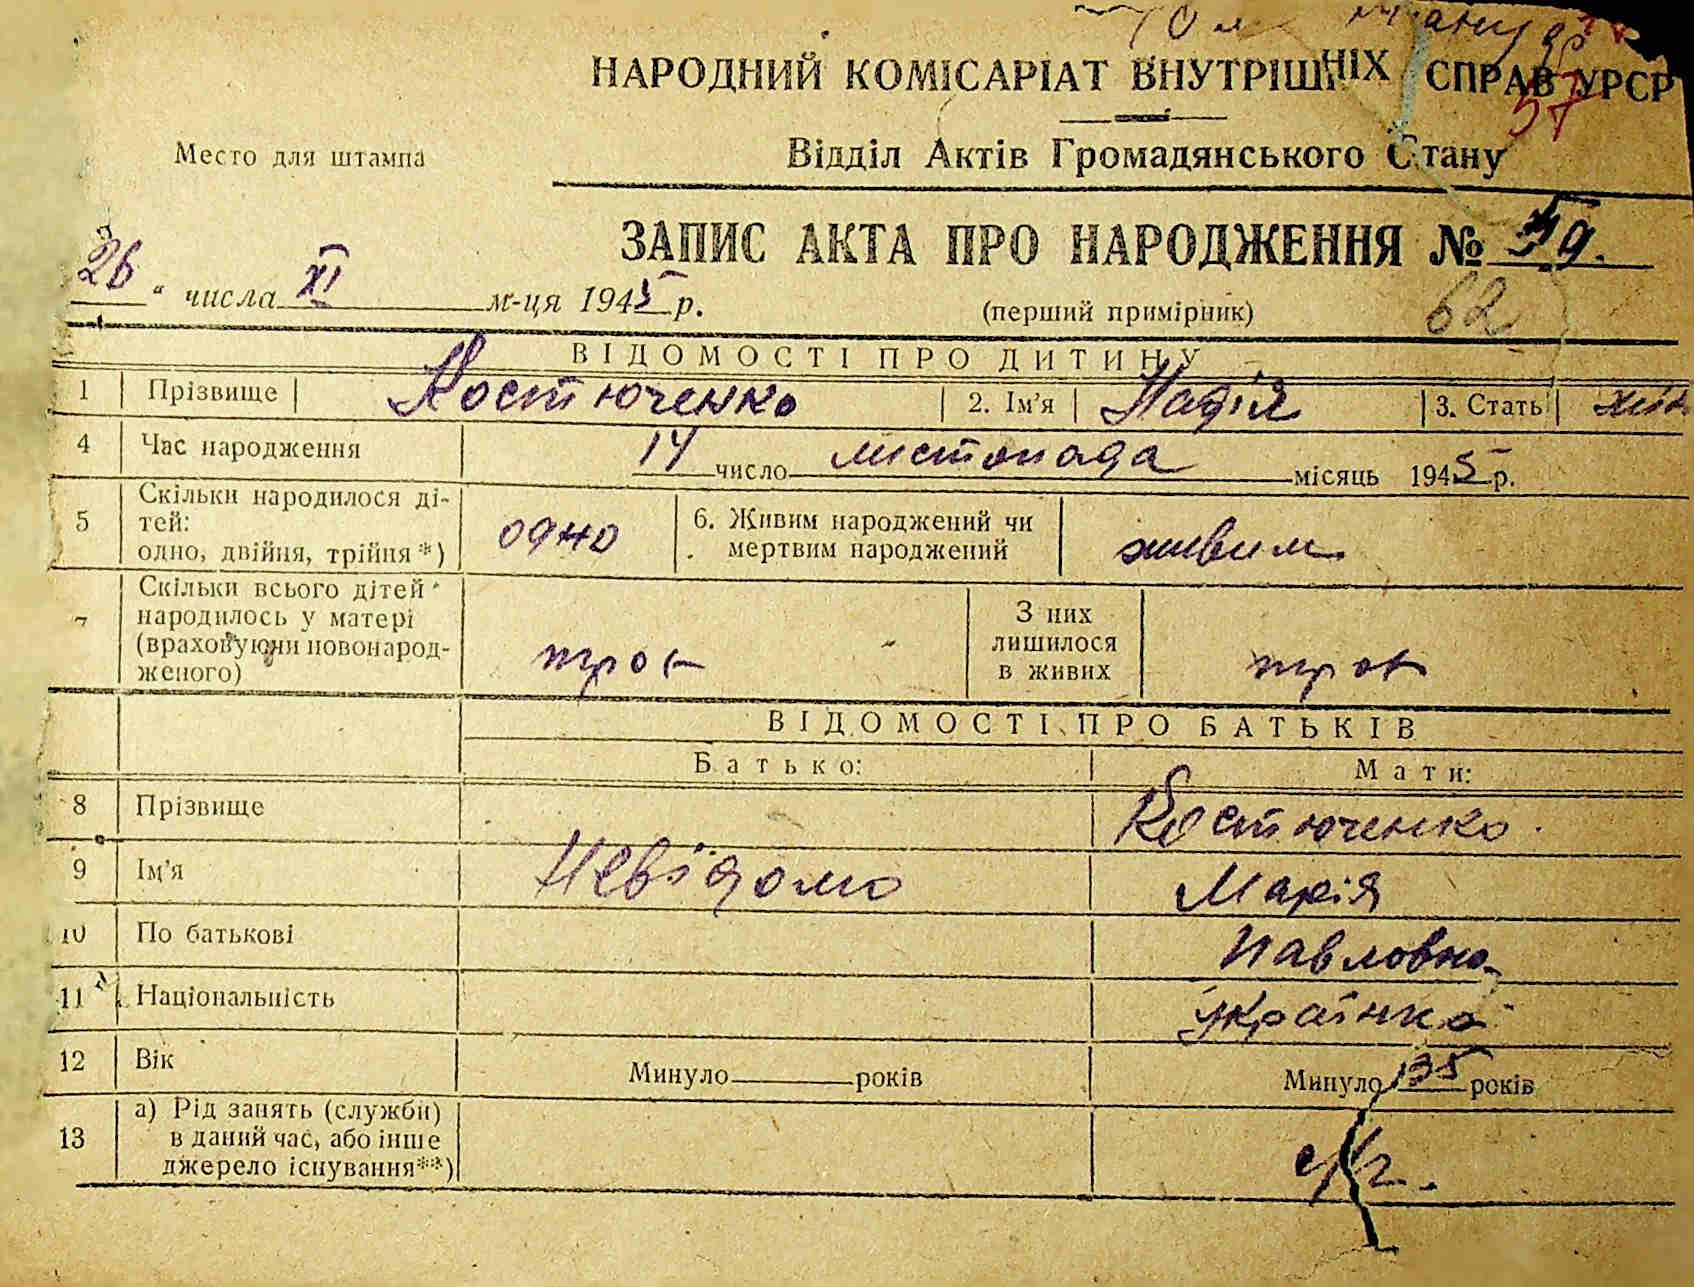 НАРОДНИЙ КОМІСАРІАТ ВНУТРІШНІХ СПРАВ УРСР
57
Место для штампа
Відділ Актів Громадянського Стану
ЗАПИС АКТА ПРО НАРОДЖЕННЯ № 59.
26 " числа XI м-ця 1945 р.
(перший примірник)
62
ВІДОМОСТІ ПРО ДИТИНУ
1 Прізвище Костюченко 2. Ім'я Надія 3. Стать жін
4 Час народження 14 число листопада місяць 1945 р.
5 Скільки народилося ді-
тей:
одно, двійня, трійня*) одно
6. Живим народжений чи
мертвим народжений живим
7 Скільки всього дітей
народилось у матері
(враховуючи новонарод-
женого) троє
З них
лишилося
в живих троє
ВІДОМОСТІ ПРО БАТЬКІВ
Батько: Мати:
8 Прізвище Костюченко
9 Ім'я Невідомо Марія
10 По батькові Павловна
11 Національність Українка
12 Вік Минуло років Минуло 35 років
13 а) Рід занять (служби)
в даний час, або інше
джерело існування**) с/г.